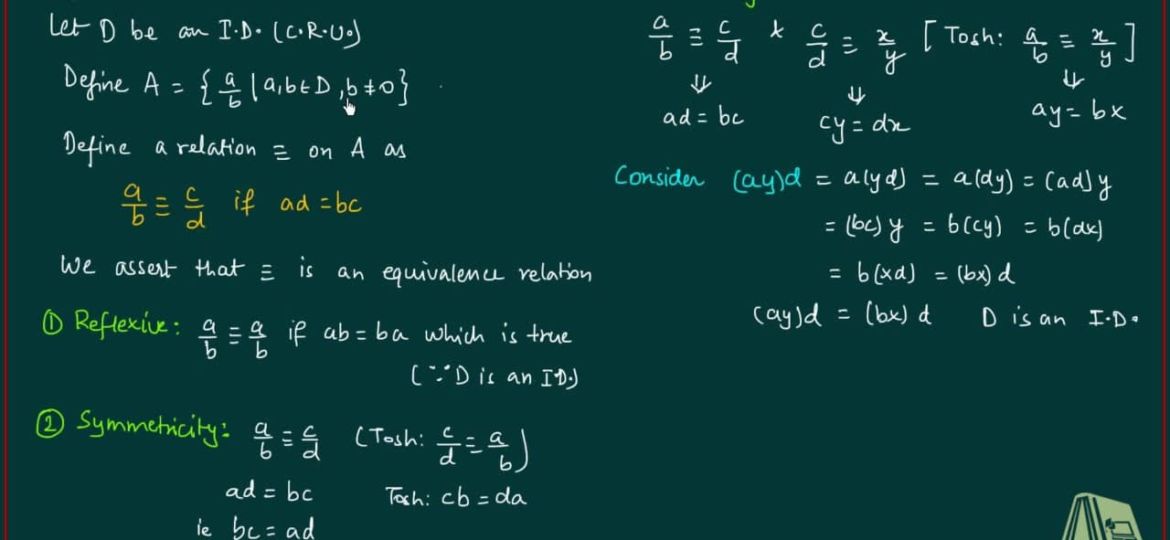 Let D be an I.D. (C.R.U.)
Define A = { a/b | a, b ∈ D, b ≠ 0 }
Define a relation ≡ on A as
a/b ≡ c/d if ad = bc
We assert that ≡ is an equivalence relation
① Reflexive: a/b ≡ a/b if ab = ba which is true
(∵ D is an I.D.)
② Symmetricity: a/b ≡ c/d (Tosh: c/d ≡ a/b)
ad = bc Tosh: cb = da
ie bc = ad
a/b ≡ c/d & c/d ≡ x/y [Tosh: a/b ≡ x/y]
⇓ ⇓ ⇓
ad = bc cy = dx ay = bx
Consider (ay)d = a(yd) = a(dy) = (ad)y
= (bc)y = b(cy) = b(dx)
= b(xd) = (bx)d
(ay)d = (bx)d D is an I.D.